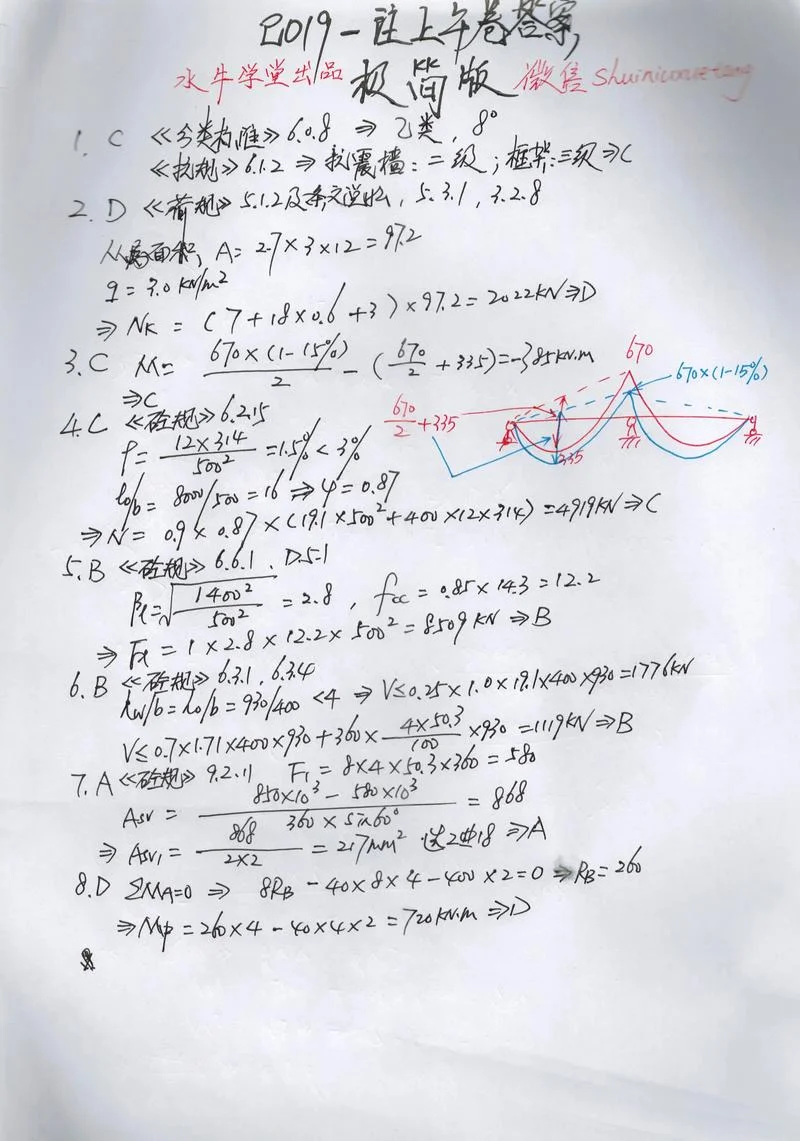 2019一注上午卷答案
水牛学堂出品 极简版 微信 shuiniuxuetang
1. C 《分类标准》6.0.8 ⇒ 乙类, 8°
《抗规》6.1.2 ⇒ 抗震墙: 二级; 框架: 三级 ⇒ C
2. D 《荷规》5.1.2及条文说明, 5.3.1, 3.2.8
从属面积, A = 2.7×3×12 = 97.2
q = 3.0 kN/m²
⇒ Nk = (7+18×0.6+3)×97.2 = 2022kN ⇒ D
3. C M = 670×(1-15%)/2 - (670/2 + 335) = -385kN.m
⇒ C
670
670×(1-15%)
670/2 + 335
335
4. C 《砼规》6.2.15
ρ = 12×314/500² = 1.5% < 3%
l0/b = 8000/500 = 16 ⇒ φ = 0.87
⇒ N = 0.9×0.87×(19.1×500²+400×12×314) = 4919kN ⇒ C
5. B 《砼规》6.6.1, D.5.1
βl = √(1400²/500²) = 2.8, fcc = 0.85×14.3 = 12.2
⇒ Fl = 1×2.8×12.2×500² = 8509kN ⇒ B
6. B 《砼规》6.3.1, 6.3.4
hw/b = h0/b = 930/400 < 4 ⇒ V≤0.25×1.0×19.1×400×930 = 1776kN
V≤0.7×1.71×400×930+360×4×50.3/100×930 = 1119kN ⇒ B
7. A 《砼规》9.2.11 F1 = 8×4×50.3×360 = 580
Asv = 850×10³ - 580×10³/360×sin60° = 868
⇒ Asv1 = 868/2×2 = 217mm² 选2⌀18 ⇒ A
8. D ΣMA=0 ⇒ 8RB - 40×8×4 - 400×2 = 0 ⇒ RB = 260
⇒ Mp = 260×4 - 40×4×2 = 720kN.m ⇒ D